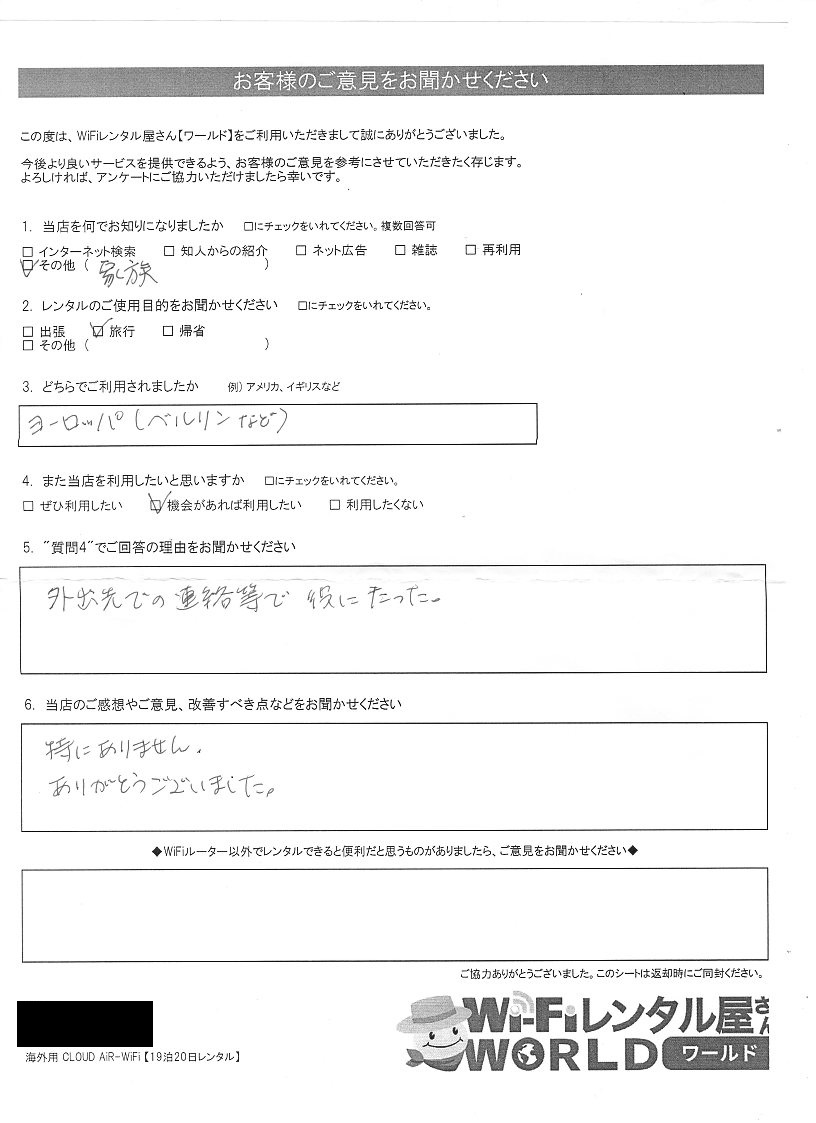 お客様のご意見をお聞かせください
この度は、WiFiレンタル屋さん【ワールド】をご利用いただきまして誠にありがとうございました。
今後より良いサービスを提供できるよう、お客様のご意見を参考にさせていただきたく存じます。
よろしければ、アンケートにご協力いただけましたら幸いです。
1. 当店を何でお知りになりましたか □にチェックをいれてください。複数回答可
□ インターネット検索 □ 知人からの紹介 □ ネット広告 □ 雑誌 □ 再利用
☑ その他 ( 家族 )
2. レンタルのご使用目的をお聞かせください □にチェックをいれてください。
□ 出張 ☑ 旅行 □ 帰省
□ その他 ( )
3. どちらでご利用されましたか 例) アメリカ、イギリスなど
ヨーロッパ(ベルリンなど)
4. また当店を利用したいと思いますか □にチェックをいれてください。
□ ぜひ利用したい ☑ 機会があれば利用したい □ 利用したくない
5. "質問4"でご回答の理由をお聞かせください
外出先での連絡等で役にたった。
6. 当店のご感想やご意見、改善すべき点などをお聞かせください
特にありません。
ありがとうございました。
◆WiFiルーター以外でレンタルできると便利だと思うものがありましたら、ご意見をお聞かせください◆
ご協力ありがとうございました。このシートは返却時にご同封ください。
Wi-Fiレンタル屋さん
WORLD ワールド
海外用 CLOUD AiR-WiFi【19泊20日レンタル】